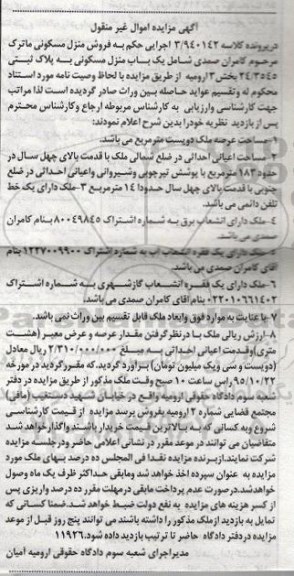 آگهی مزایده اموال غیر منقول
درپرونده کلاسه ۳/۹۴۰۱۴۲ اجرایی حکم به فروش منزل مسکونی ماترک
مرحوم کامران صمدی شامل یک باب منزل مسکونی به پلاک ثبتی
۲۴/۳۵۴۵ بخش ۳ ارومیه از طریق مزایده با لحاظ وصیت نامه مورد استناد
محکوم له وتقسیم عواید حاصله بین وراث صادر گردیده است لذا مراتب
جهت کارشناسی وارزیابی به کارشناس مربوطه ارجاع وکارشناس محترم
پس از بازدید نظریه خودرا بدین شرح اعلام نمودند:
۱- مساحت عرصه ملک دویست مترمربع می باشد.
۲- مساحت اعیانی احداثی در ضلع شمالی ملک با قدمت بالای چهل سال در
حدود ۱۸۳ مترمربع با پوشش تیرچوبی وشیروانی واعیانی احداثی در ضلع
جنوبی با قدمت بالای چهل سال حدودا ۱۴ مترمربع ۳-ملک دارای یک خط
تلفن دائمی می باشد.
۴-ملک دارای انشعاب برق به شماره اشتراک ۸۰۰۴۹۸۴۵ بنام کامران
صمدی می باشد.
۵-ملک دارای یک فقره انشعاب آب به شماره اشتراک ۱۲۲۷۰۰۹۹۰۰ بنام
آقای کامران صمدی می باشد.
۶-ملک دارای یک فقره انشعاب گازشهری به شماره اشتراک
۰۲۲۰۱۰۶۶۱۴۰۲ بنام آقای کامران صمدی می باشد.
۷-با عنایت به موارد فوق وابعاد ملک قابل تقسیم بین وراث نمی باشد.
۸-ارزش ریالی ملک با در نظر گرفتن مقدار عرصه و عرض معبر (هشت
متری) وقدمت اعیانی احداثی به مبلغ ۲/۳۱۰/۰۰۰/۰۰۰ ریال معادل
(دویست و سی ویک میلیون تومان) برآورد گردید، که مقرر گردید در مورخه
۹۵/۱۰/۲۲ راس ساعت ۱۰ صبح وقت ملک مذکور از طریق مزایده در دفتر
شعبه سوم دادگاه حقوقی ارومیه واقع در خیابان شهید دستغیب (مافی)
مجتمع قضایی شماره ۲ ارومیه بفروش برسد مزایده از قیمت کارشناسی
شروع وبه کسانی که به بالاترین قیمت خریدار باشند واگذار خواهد شد
متقاضیان می توانند در موعد مقرر در نشانی اعلامی حاضر ودر جلسه مزایده
شرکت نمایند. از برنده مزایده نقدا فی المجلس ده درصد بهای ملک مورد
مزایده به عنوان سپرده اخذ خواهد شد ومابقی حداکثر ظرف یک ماه وصول
خواهد شد. در صورت عدم پرداخت مابقی در مهلت مقرر ده درصد واریزی پس
از کسر هزینه های مزایده به نفع دولت ضبط خواهد شد. ضمنا کسانی که
تمایل به بازدید از ملک مذکور را داشته باشند می توانند پنج روز قبل از موعد
مزایده در دفتر دادگاه حاضر تا ترتیب بازدید داده شود. ۱۱۹۲۶
مدیر اجرای شعبه سوم دادگاه حقوقی ارومیه امیان